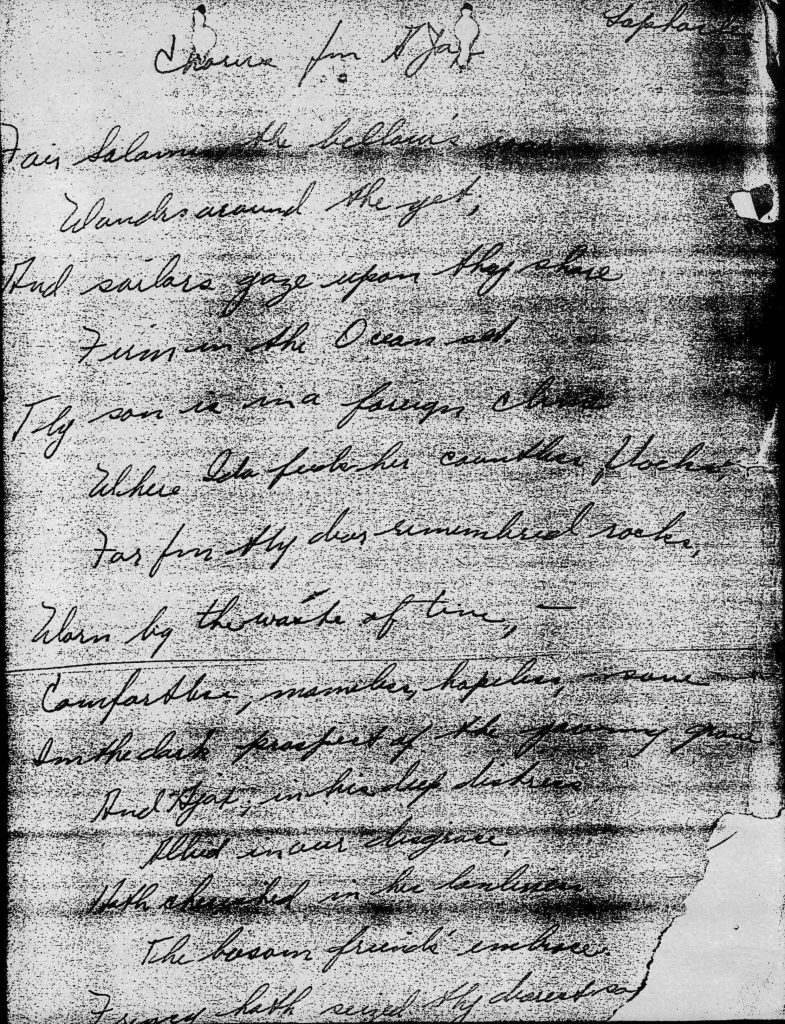 Sophocles
Chorus fm Ajax
Fair Salamis the billow's roar
Wanders around the yet,
And sailors gaze upon thy shore
Firm in the Ocean set.
Thy son is in a foreign clime
Where Ida feeds her countless flocks,
Far fm thy dear remembered rocks,
Worn by the waste of time, —
Comfortless, nameless, hopeless, save
In the dark prospect of the yawning grave
And Ajax, in his deep distress
Allied in our disgrace,
Hath cherished in his loneliness
The bosom friend's embrace.
Frenzy hath seized thy dearest so